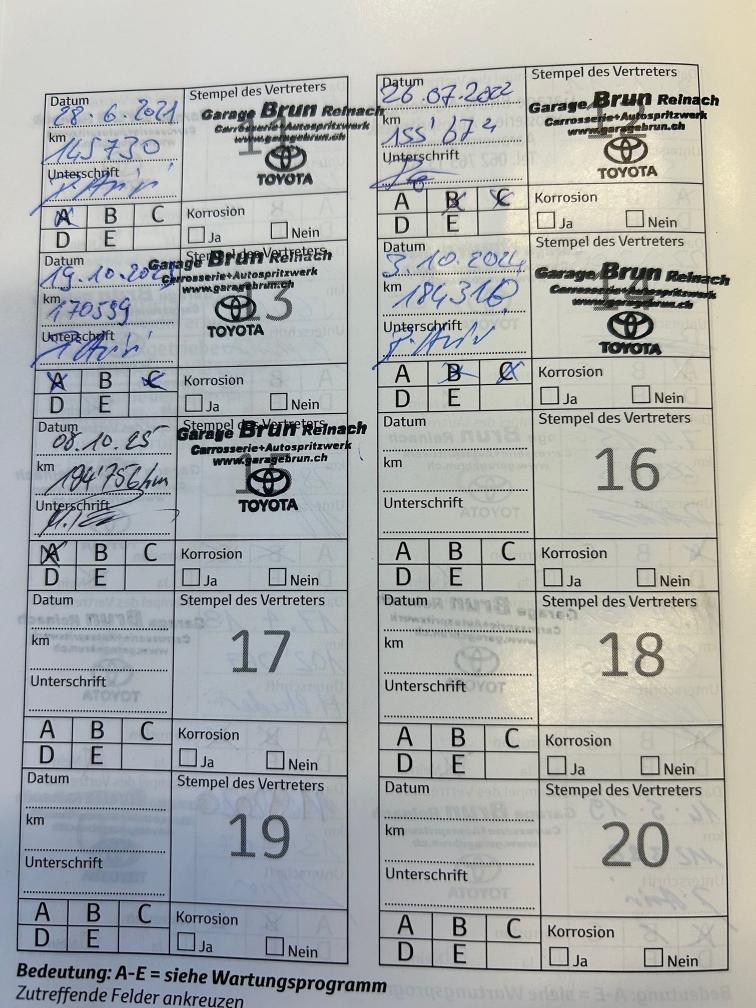 Datum
28.6.2021
km
145730
Unterschrift
Stempel des Vertreters
Garage Brun Reinach
Carrosserie+Autospritzwerk
www.garagebrun.ch
TOYOTA
A B C
D E
Korrosion
Ja Nein
Datum
26.07.2022
km
155'672
Unterschrift
Stempel des Vertreters
Garage Brun Reinach
Carrosserie+Autospritzwerk
www.garagebrun.ch
TOYOTA
A B C
D E
Korrosion
Ja Nein
Datum
19.10.202
km
170559
Unterschrift
Stempel des Vertreters
Garage Brun Reinach
Carrosserie+Autospritzwerk
www.garagebrun.ch
13
TOYOTA
A B C
D E
Korrosion
Ja Nein
Datum
3.10.2024
km
184316
Unterschrift
Stempel des Vertreters
Garage Brun Reinach
Carrosserie+Autospritzwerk
www.garagebrun.ch
TOYOTA
A B C
D E
Korrosion
Ja Nein
Datum
08.10.25
km
194'756 km
Unterschrift
Stempel des Vertreters
Garage Brun Reinach
Carrosserie+Autospritzwerk
www.garagebrun.ch
TOYOTA
A B C
D E
Korrosion
Ja Nein
Datum
km
Unterschrift
Stempel des Vertreters
16
A B C
D E
Korrosion
Ja Nein
Datum
km
Unterschrift
Stempel des Vertreters
17
A B C
D E
Korrosion
Ja Nein
Datum
km
Unterschrift
Stempel des Vertreters
18
A B C
D E
Korrosion
Ja Nein
Datum
km
Unterschrift
Stempel des Vertreters
19
A B C
D E
Korrosion
Ja Nein
Datum
km
Unterschrift
Stempel des Vertreters
20
A B C
D E
Korrosion
Ja Nein
Bedeutung: A-E = siehe Wartungsprogramm
Zutreffende Felder ankreuzen